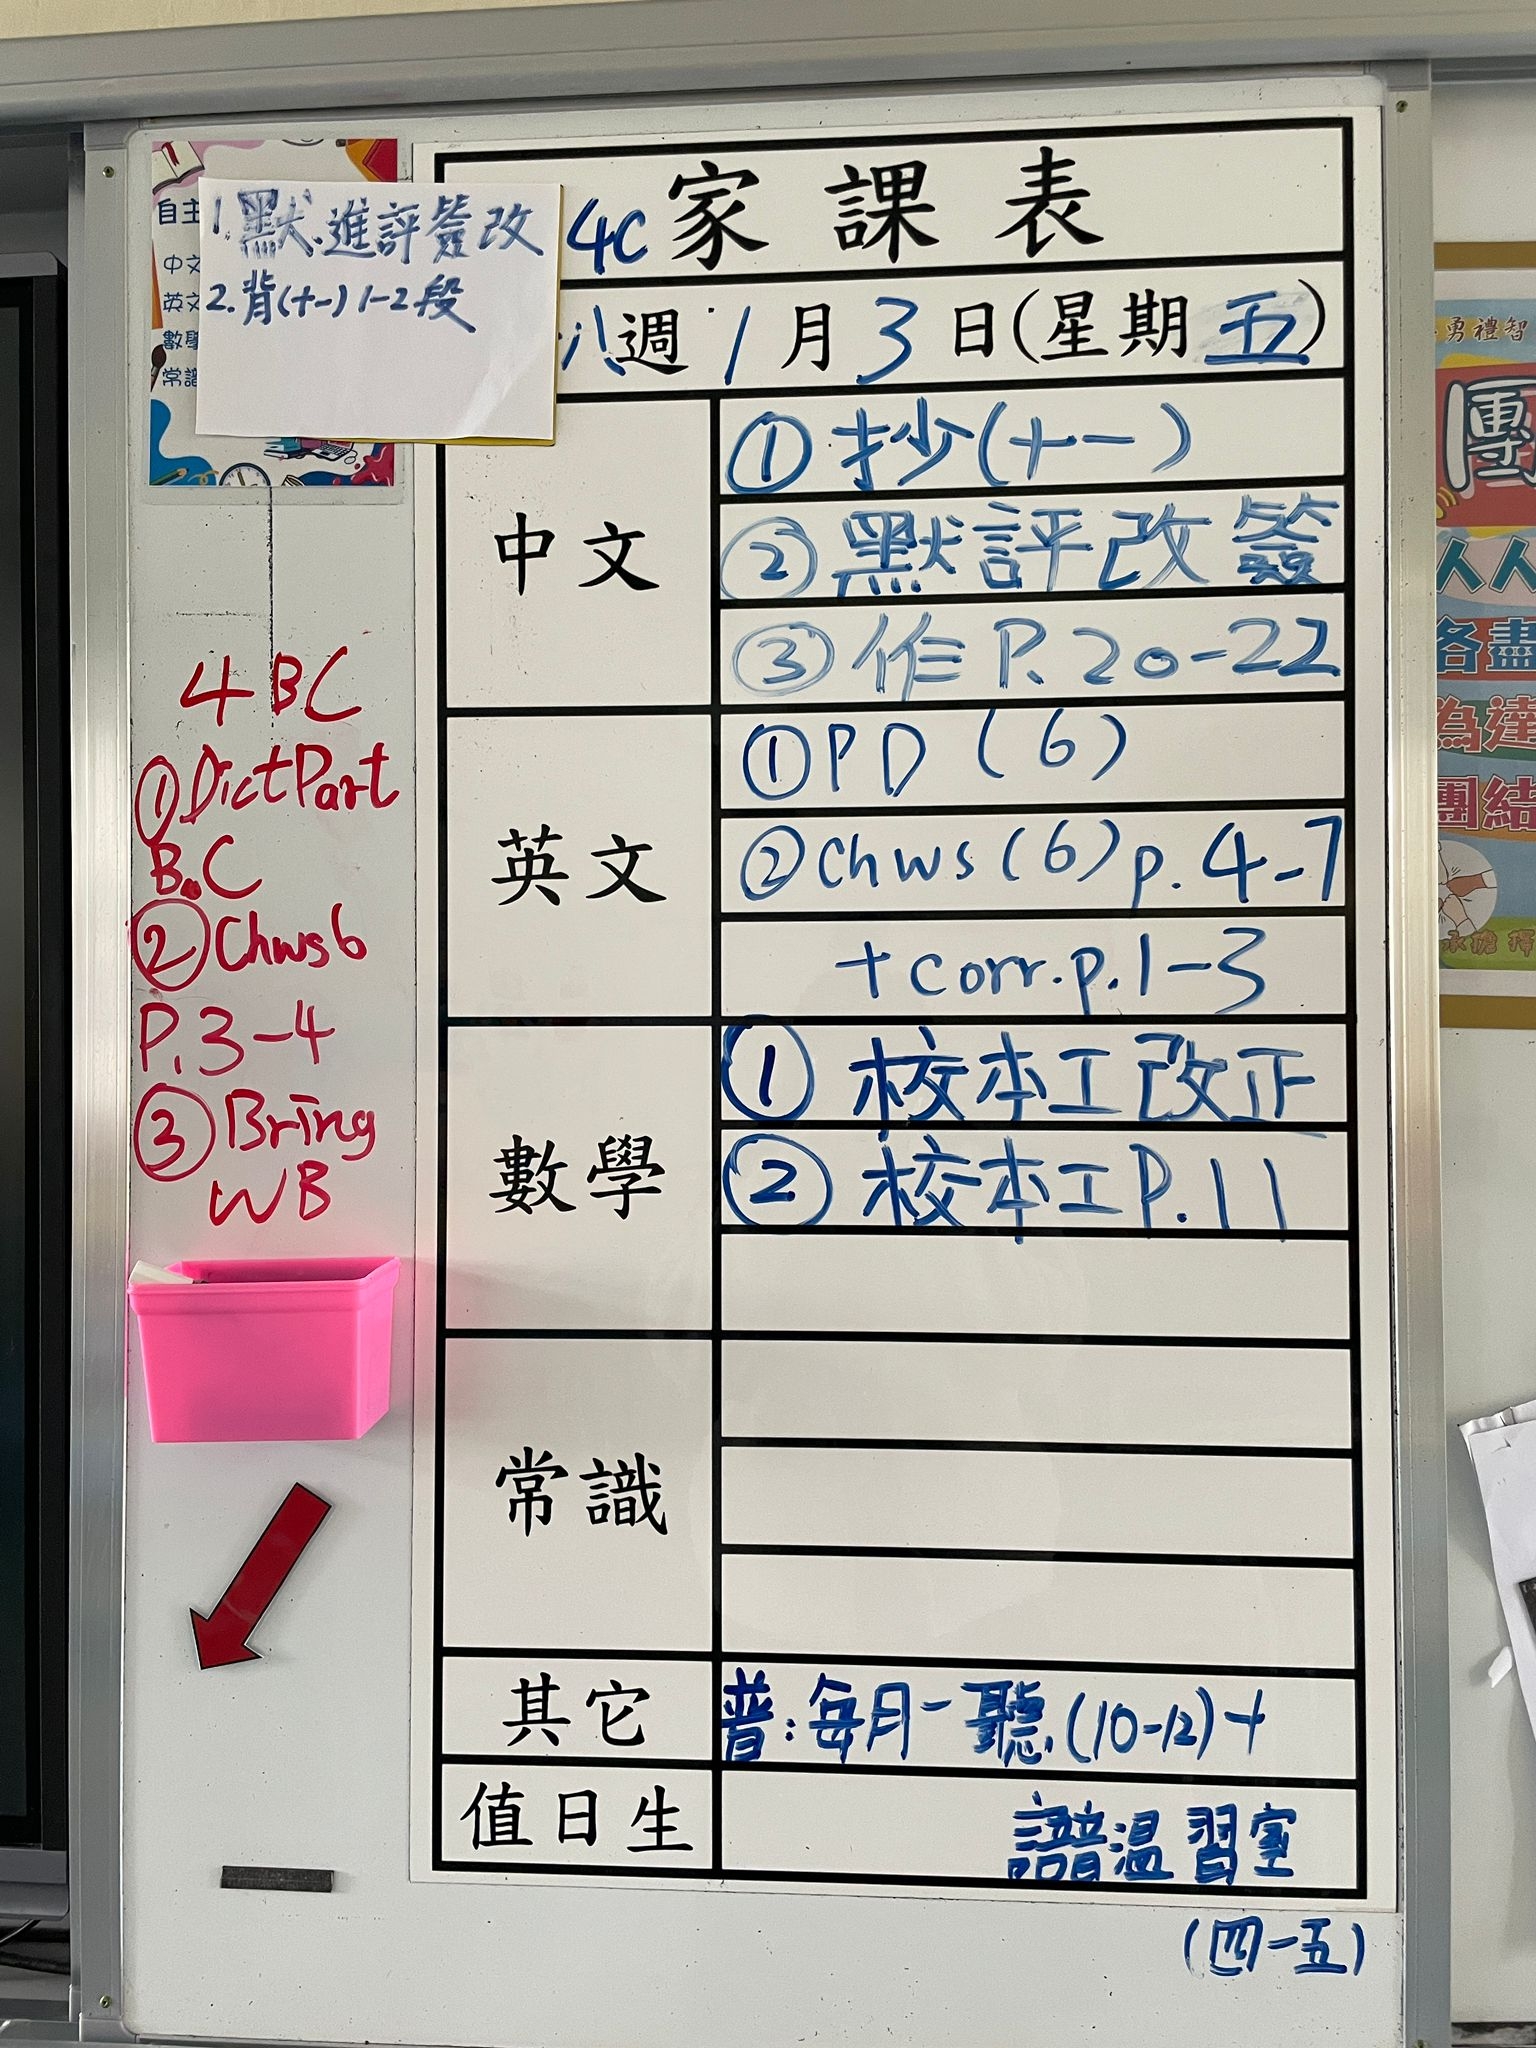 自主
中文
英文
數學
常識
1.默.進評簽改
2.背(十一)1-2段
4C家課表
八週1月3日(星期五)
中文
①抄(十一)
②默評改簽
③作P.20-22
英文
①PD(6)
②Chws(6)p.4-7
+corr.p.1-3
數學
①校本工改正
②校本工P.11
常識
其它
普:每月一聽(10-12)+
值日生
語音溫習室
(四-五)
4BC
①DictPart
B.C
②Chws6
P.3-4
③Bring
WB
勇禮智
團
人人
各盡
為達
團結
承擔